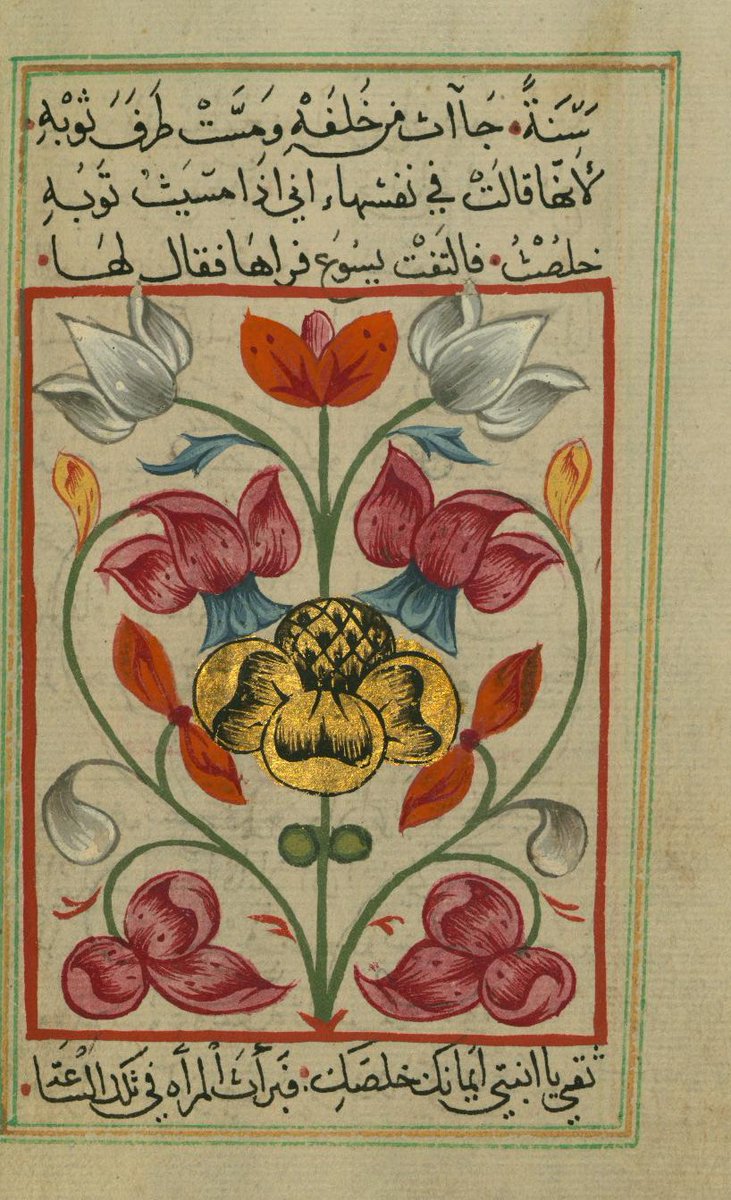 سَّنَةً. جَاآت من خَلفَهِ وَمَسَّتْ طَرَفَ ثَوْبَهِ
لأنهَّا قالَتْ في نفسْهاء اني اذَا مسّيتُ ثَوبَهِ
خلصُتْ. فالتفتْ يسوُع فراهَا فقال لهَا
ثقي يا ابنتي ايمانك خلصَكِ. فبَرأتَ المرأه في تلك السْاعَة